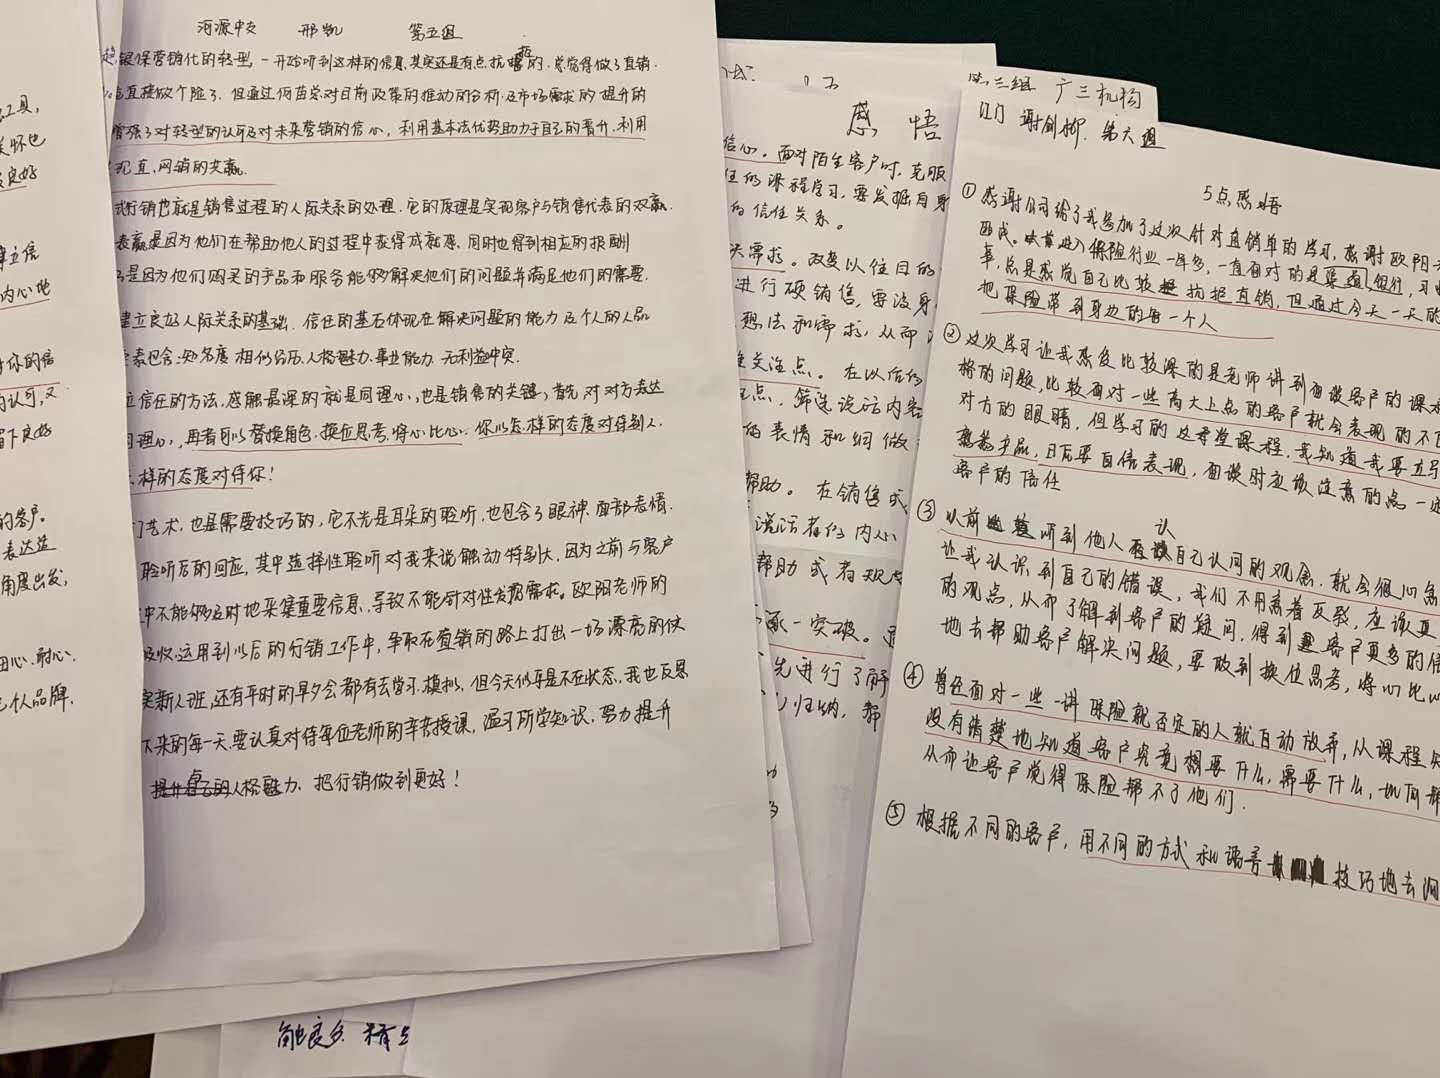 工具,
关怀也
良好
建立信
内心地
对你的信
的认可,又
留下良好
的客户。
表达适
角度出发,
细心、耐心、
个人品牌.
河源中支 邢凯 第五组
银保营销化的转型,一开始听到这样的信息,其实还是有点抗拒的.总觉得做了直销.
直接做个险了.但通过何苗总对目前政策的推动的分析及市场需求的提升的
增强了对转型的认可及对未来营销的信心,利用基本法优势助力于自己的晋升.利用
现直,网销的共赢.
式行销也就是销售过程的人际关系的处理.它的原理是实现客户与销售代表的双赢
表赢是因为他们在帮助他人的过程中获得成就感.同时也得到相应的报酬
是因为他们购买的产品和服务能够解决他们的问题并满足他们的需要.
建立良好人际关系的基础.信任的基石体现在解决问题的能力及个人的人品
素包含:知名度 相似经历.人格魅力.事业能力.无利益冲突.
立信任的方法,感触最深的就是同理心,也是销售的关键,首先对对方表达
同理心,再者可以替换角色.换位思考,将心比心.你以怎样的态度对待别人.
样的态度对待你!
门艺术.也是需要技巧的,它不光是耳朵的聆听.也包含了眼神.面部表情.
聆听后的回应,其中选择性聆听对我来说触动特别大,因为之前与客户
中不能够及时地采集重要信息,导致不能针对性发掘需求。欧阳老师的
吸收运用到以后的行销工作中,争取在直销的路上打出一场漂亮的仗
新人班,还有平时的早夕会都有去学习.模拟,但今天似乎是不在状态,我也反思
下来的每一天要认真对待每位老师的辛苦授课,温习所学知识,努力提升
提升自己的人格魅力.把行销做到更好!
感 悟
信心。面对陌生客户时,克服
任的课程学习,要发掘自身
的信任关系。
需求。改变以往日的
进行硬销售,要设身
想法和需求,从而
关注点。在以后的
点,筛选谈话内容
的表情和细微
帮助。在销售或
说话者的内心
帮助或者观点
逐一突破。
先进行了解
归纳,帮
能良多 精
第三组 广三机构
江门 谢剑柳.第六组
5点感悟
①感谢公司给了我参加了这次针对直销单的学习,感谢欧阳
进入保险行业一年多,一直面对的是渠道,银行,
总是感觉自己比较抗拒直销,但通过今天一天的
把保险带到身边的每一个人
②这次学习让我感受比较深的是老师讲到面谈客户的课
格的问题,比较面对一些高大上点的客户就会表现的不
对方的眼睛,但学习的这堂课程,我知道我要
熟悉产品,日后要自信表现,面谈时应该注意的点一定
客户的信任
③以前听到他人否认自己认同的观念.就会很心急
让我认识到自己的错误,我们不用急着反驳,应该真
的观点,从而了解到客户的疑问,得到客户更多的信
地去帮助客户解决问题,要做到换位思考,将心比心
④曾经面对一些一讲保险就否定的人就自动放弃,从课程
没有清楚地知道客户究竟想要什么,需要什么,如何
从而让客户觉得保险帮不了他们.
⑤根据不同的客户,用不同的方式和语言技巧地去